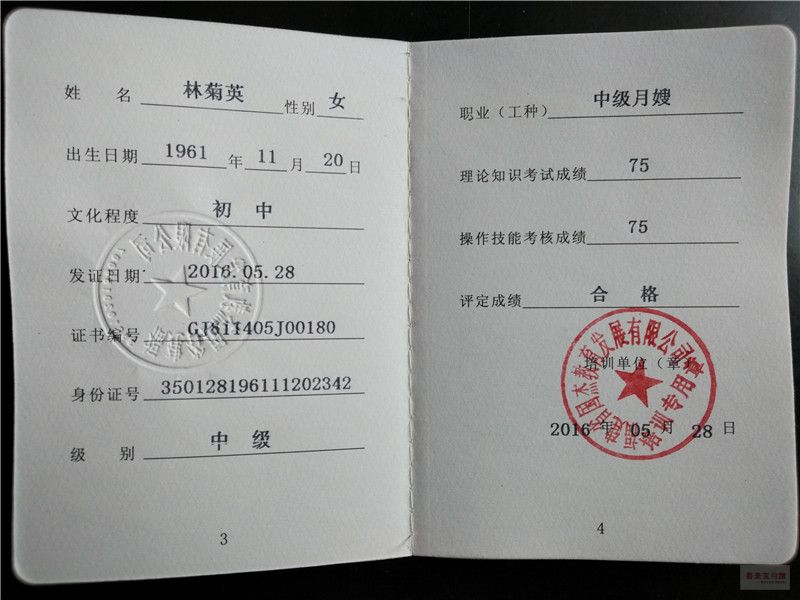 姓 名 林菊英 性别 女
出生日期 1961 年 11 月 20 日
文化程度 初 中
发证日期 2016.05.28
证书编号 GJ811405J00180
身份证号 350128196111202342
级 别 中 级
3
职业（工种） 中级月嫂
理论知识考试成绩 75
操作技能考核成绩 75
评定成绩 合 格
培训单位（章）
教育发展有限公司
培训专用章
2016 年 05 月 28 日
4